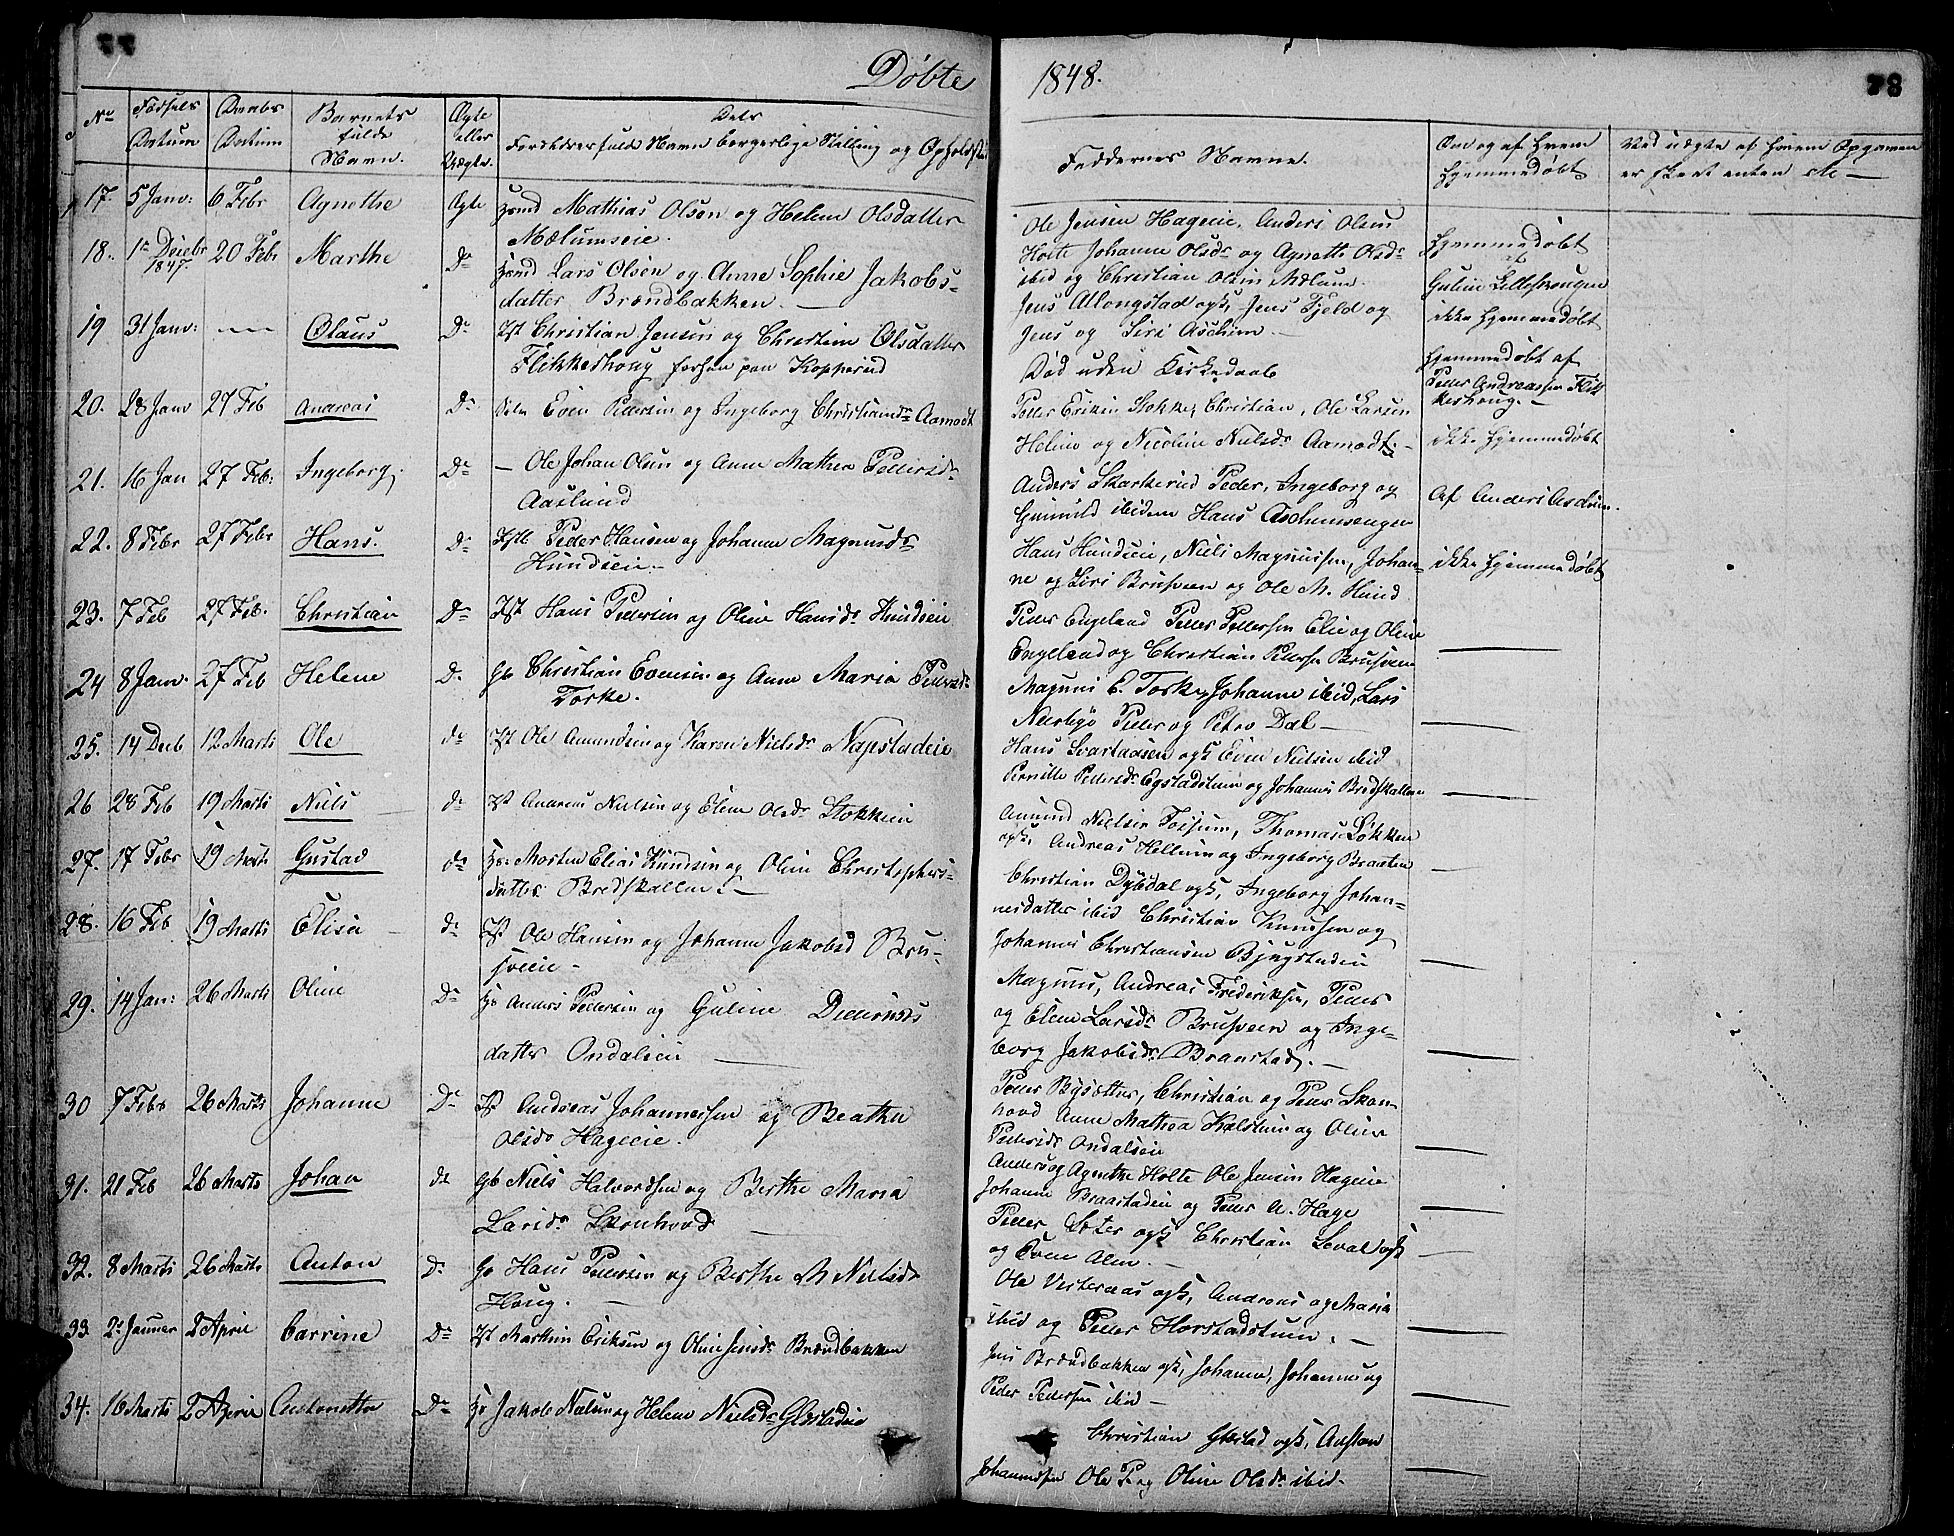 77
Døbte
1848.
78
No
Fødsels Datum
Daabs Datum
Barnets fulde Navn.
Ægte eller Uægte.
Dets Forældres fulde Navn borgerlige Stilling og Opholdsst
Faddernes Navne.
Om og af Hvem Hjemmedøbt
Ved uægte af hvem Opgaven er skeet enten etc —
17. 5 Janv: 6 Febr Agnethe Ægte Mathias Olsen og Helene Olsdatter
Mælumseie.
Ole Jensen Hageeie, Anders Olsen
Holte Johanne Olsdr og Agnethe Olsdr
ibid og Christian Olsen Mælum.
Hjemmedøbt
af
18. 1 Decbr 1847 20 Febr Marthe Do Lars Olsen og Anne Sophie Jakobs-
datter Brændbakken. —
Jens Alongstad ogk, Jens Fjeld og
Jens og Siri Aschim —
ikke Hjemmedøbt
19 31 Janv: — Olaus Do Christian Jensen og Christine Olsdatter
Flikkeshoug
Død uden Kirkedaab
Hjemmedøbt af
Peder Andreassen Flik
keshoug. —
20. 28 Janv 27 Feb Andreas Do Even Pedersen og Ingeborg Christiansdr Aamodt
Peder Eriksen Stokke, Christian, Ole Larsen
Helene og Nicoline Nielsdr Aamodt. —
ikke Hjemmedøbt
21. 16 Jan 27 Feb: Ingeborg. Do — Ole Johan Olsen og Anne Mathea Pedersdr
Aaslund
Anders Skarkerud Peder, Ingeborg og
Gunnild ibidem Hans Aschimsengen
Af Anders Aschim.
22. 8 Febr 27 Febr Hans. Do Peder Hansen og Johanne Magnusdr
Hundseie. —
Hans Hundseie, Niels Magnussen, Johan-
ne og Siri Brusveen og Ole M. Hund
ikke Hjemmedøbt
23. 7 Feb 27 Feb. Christian Do Hans Pedersen og Oline Hansdr Hundseie
Peder Engeland Peder Pedersen Elie og Oline
Engeland og Christian Peders Brusveen
24 8 Janv. 27 Feb Helene Do Christian Evensen og Anne Maria Pedersdr
Torke.
Magnus E. Torke, Johanne ibid, Lars
Nerbyø Peder og Petro Dal —
25. 14 Decb 12 Marts Ole do Ole Amundsen og Karen Nielsdr Napstadeie
Hans Svartaasen ogk Even Nielsen ibid
Pernille Pedersdr Egstadstuen og Johannes Bredskallen
26 28 Feb 19 Marts Niels do Andreas Nielsen og Eline Olsdr Stokkeie
Amund Nielsen Toisum, Thomas Løkken
ogk, Andreas Hellum og Ingeborg Braaten
27. 17 Febr 19 Marts Gustad do Morten Elias Knudsen og Oline Christophers-
datter Bredskallen. —
Christian Dybdal ogk, Ingeborg Johan-
nesdatter ibid Christian Knudsen og
Johannes Christiansen Bjugstadeie
28. 16 Feb 19 Marts Elisa do Ole Hansen og Johanne Jakobsd Bru-
sveeie —
Magnus, Andreas Frederiksen, Peder
og Eline Larsdr Brusveen og Inge-
borg Jakobsdr Braastad. —
29. 14 Jan: 26 Marts Oline Do Anders Pedersen og Guline
datter Ondalseie
Peder Bysætter, Christian og Peder Skon-
hovd Anne Mathea Kalstuen og Oline
Pedersdr Ondalseie
30 7 Febr 26 Marts Johanne Do Andreas Johannessen og Beathe
Olsdr Hageeie.
Anders og Agnethe Holte Ole Jensen Hageeie
Johanne Braastadeie og Peder A. Hage
31. 21 Feb 26 Marts Johan do Niels Halvordsen og Berthe Maria
Larsdr Skonhovd
Peder Sæter ogk Christian Seval ogk
og Even Alm. —
32. 8 Marts 26 Marts Anton Do Hans Pedersen og Berthe M Nielsdr
Houg. —
Ole Vesteraas ogk, Andreas og Maria
ibid og Peder Horstadstuen. —
33. 2 Januar 2 April Carrine Do Mathias Eriksen og Oline Jensdr Brændbakken
Jens Brændbakken ogk, Johanne, Johannes og
Peder Pedersen ibid —
34. 16 Marts 2 April Antonette Do Jakob Nielsen og Helene Nielsdr Glæstadeie
Christian Glæstad ogk,
Johannessen Ole P. og Oline Olsdr ibid. —